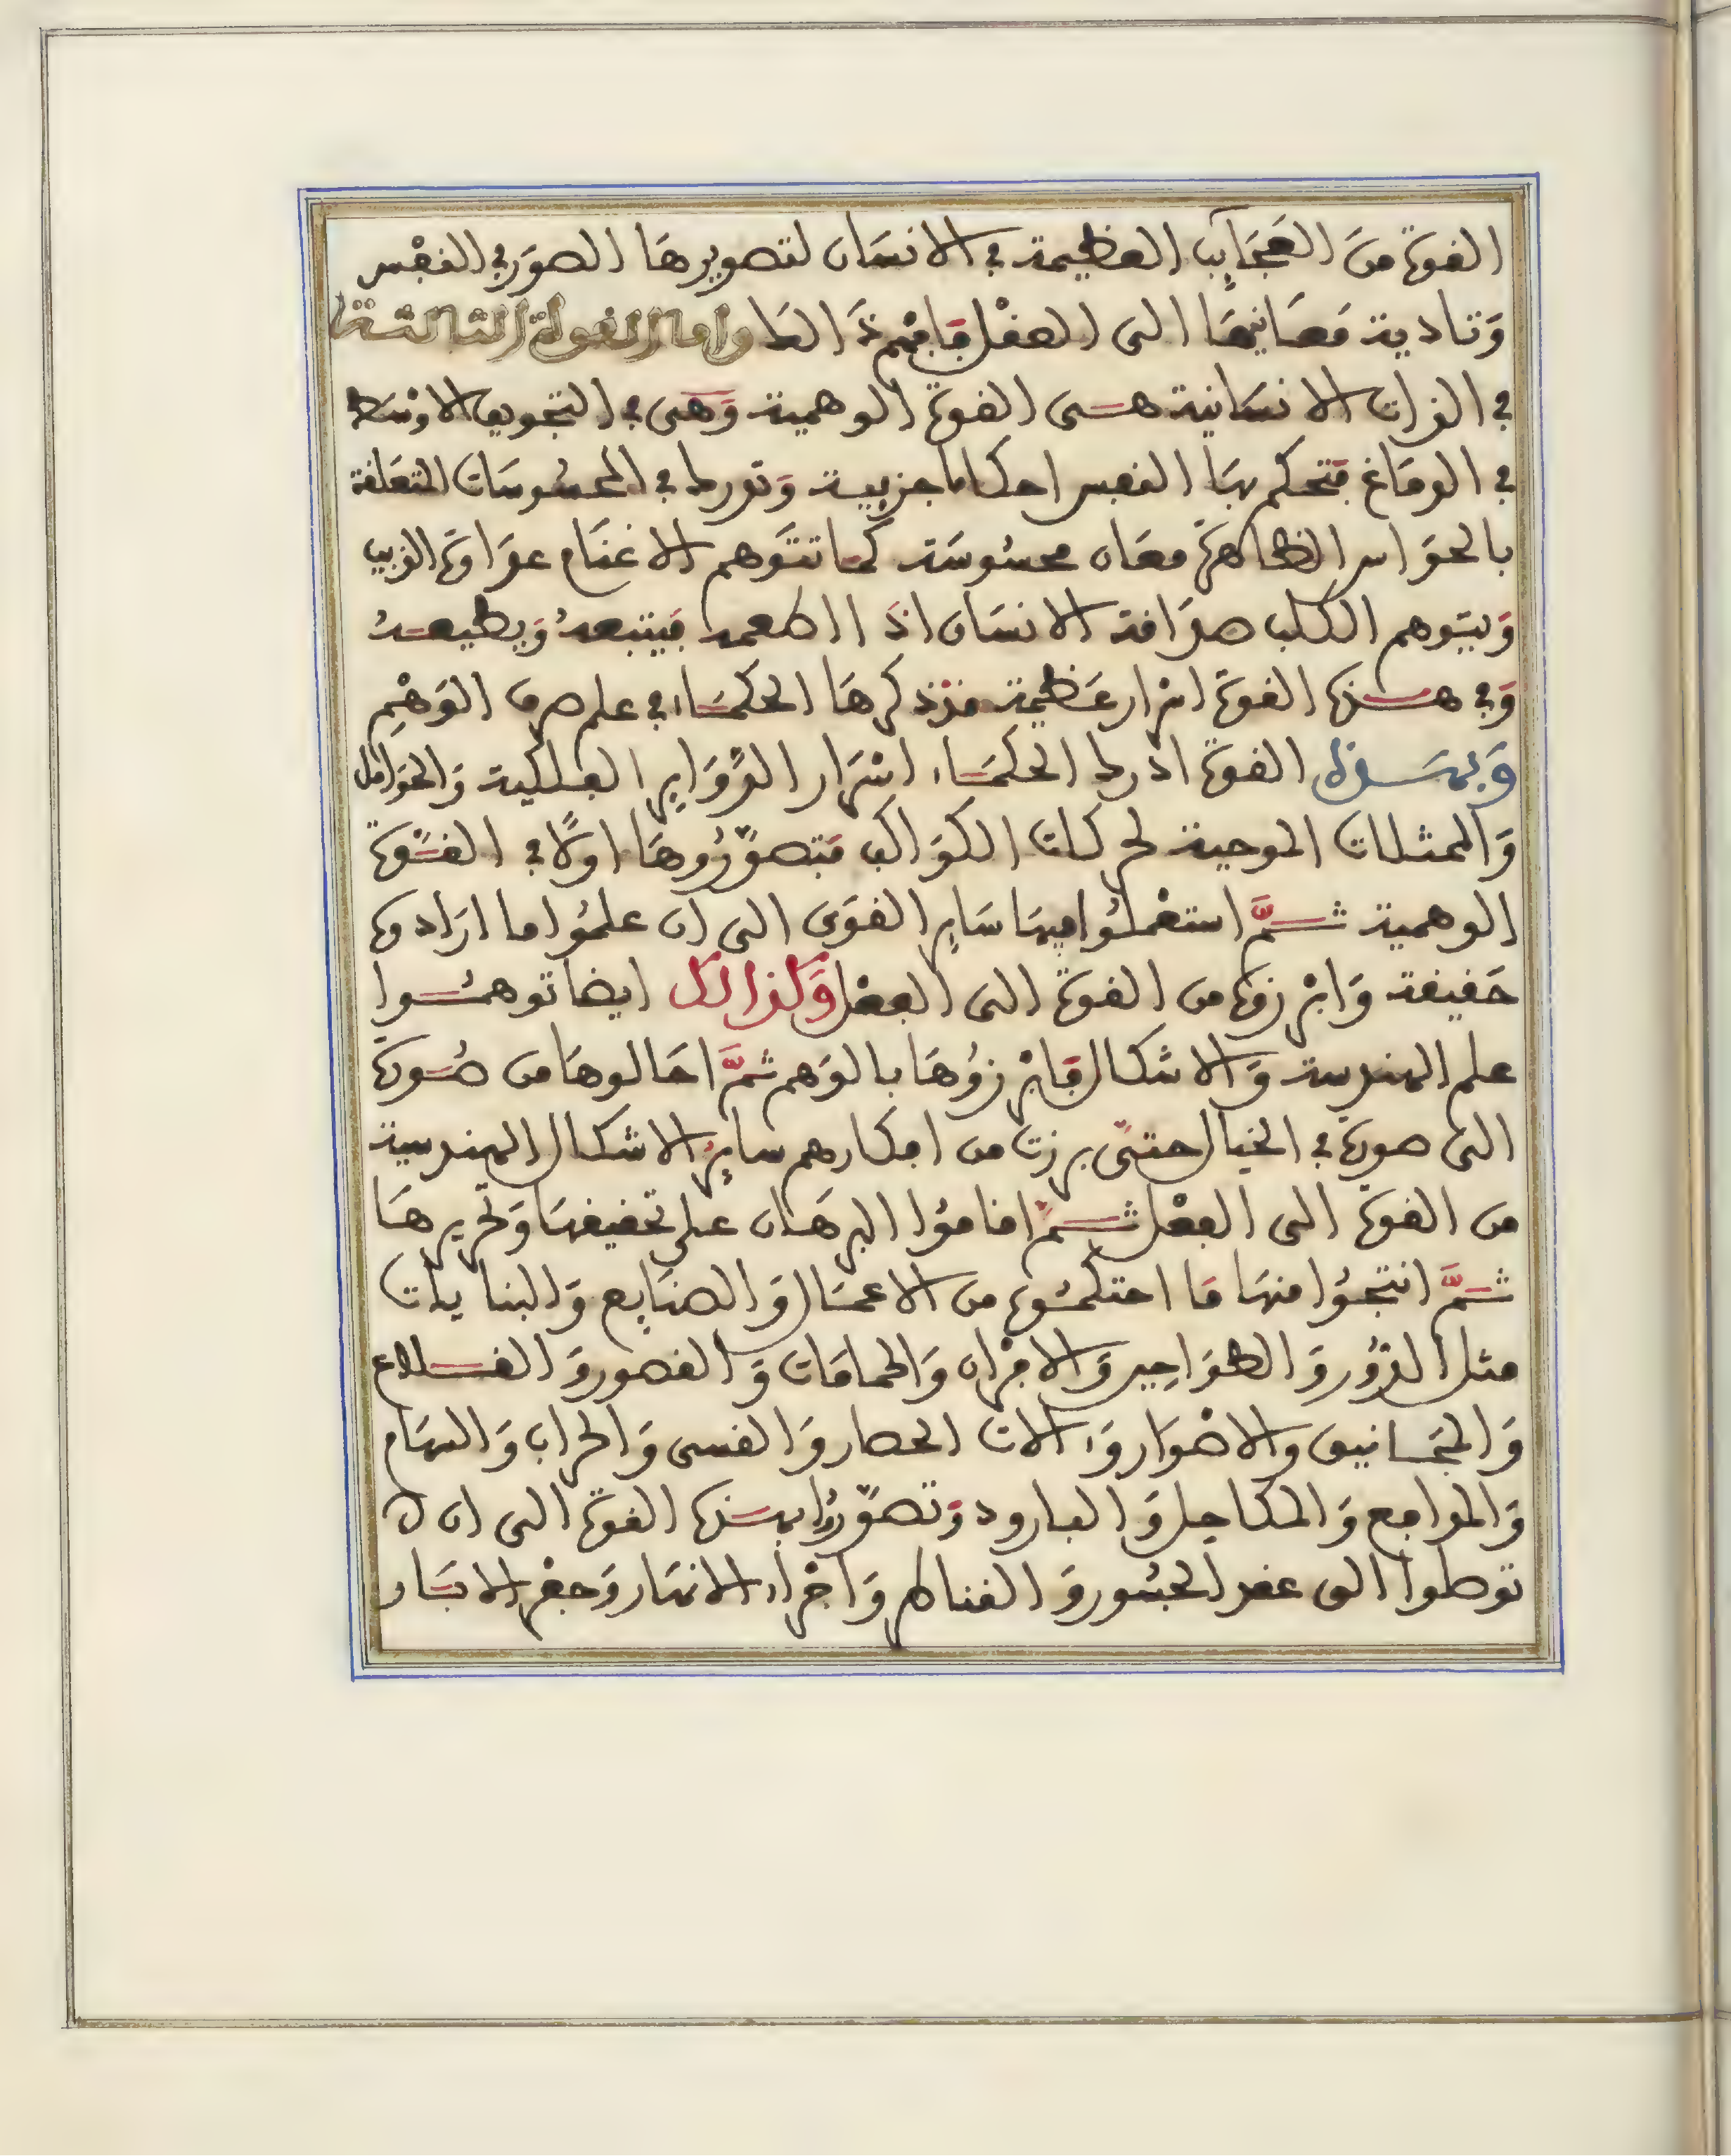 القوة من العَجَايِب العظيمة في الانسان لتصويرها الصور في النفس
وتادية معانيها الى العقل فافهم ذالك واما القوة الثالثة
في الذات الانسانية هى القوة الوهمية وهى في التجويف الاوسط
في الدماغ فتحكم بها النفس احكاما جزيية وتدرك في المحسوسات المتعلقة
بالحواس الظاهرة معان محسوسة كما تتوهم الاغنام عداوة الذيب
ويتوهم الكلب صداقة الانسان اذا اطعمه فيتبعه ويطيعه
وفي هذه القوة اسرار عظيمة قد ذكرها الحكماء في علم صرف الوهم
وبهذه القوة ادرك الحكماء اسرار الدواير الفلكية والحوامل
والممثلات الموجبة لحركات الكواكب فتصوروها اولا في القوة
الوهمية ثم استعملوا فيها ساير القوى الى ان علموا ما ارادوه
حقيقة وابرزوه من القوة الى الفعل وكذالك ايضا توهموا
علم الهندسة والاشكال فابرزوها بالوهم ثم احالوها من صورة
الى صورة في الخيال حتى برزت من افكارهم ساير الاشكال الهندسية
من القوة الى الفعل ثم اقاموا البرهان على تحقيقها وتحريرها
ثم انتجوا منها ما احتكموه من الاعمال والصنايع والبنايات
مثل الدور والطواحين والافران والحمامات والقصور والقلاع
والمجانيق والاصوار وءالات الحصار والقسى والحراب والسهام
والمدافع والمكاحل والبارود وتصوروا بهذه القوة الى ان
توصلوا الى عقد الجسور والقناطر واجراء الانهار وحفر الابار